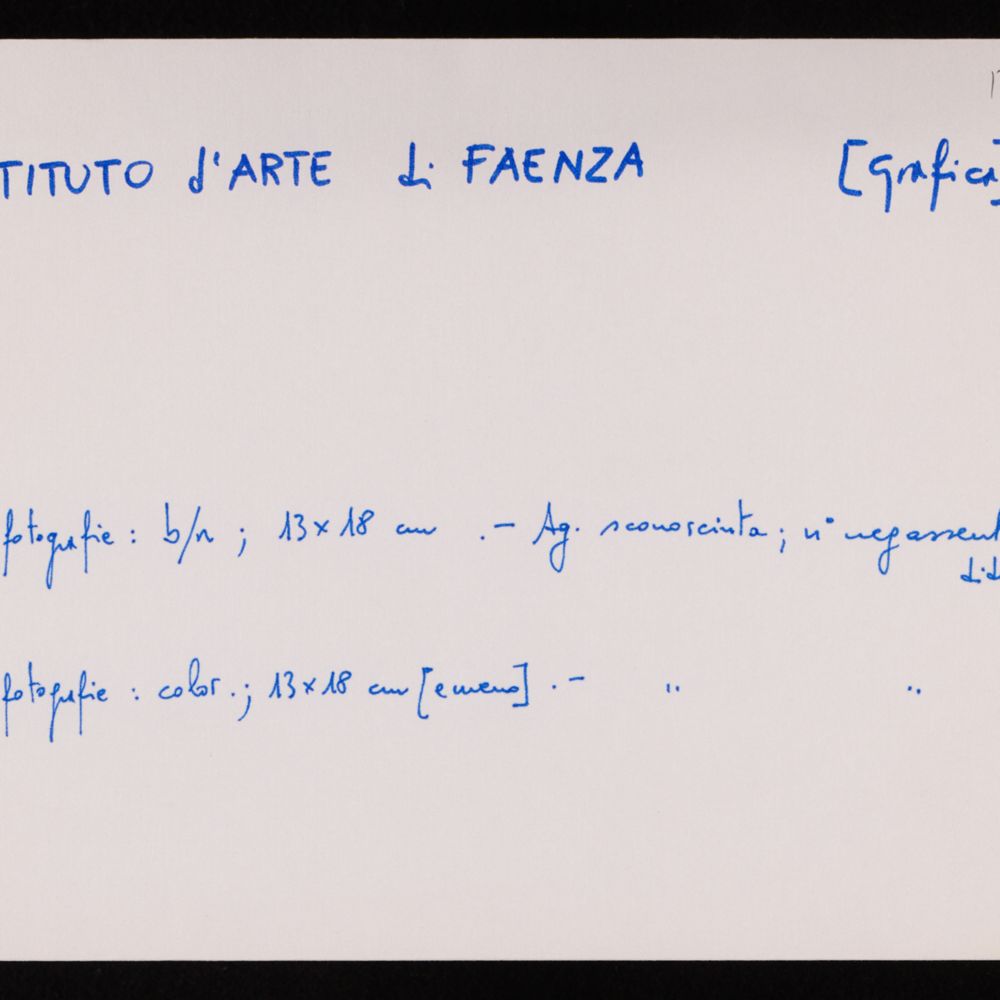 TITUTO d'ARTE di FAENZA [Grafica]
fotografie : b/n ; 13×18 cm .- Ag. sconosciuta ; n° neg assent
did
fotografie : color. ; 13×18 cm [e meno] .- " "